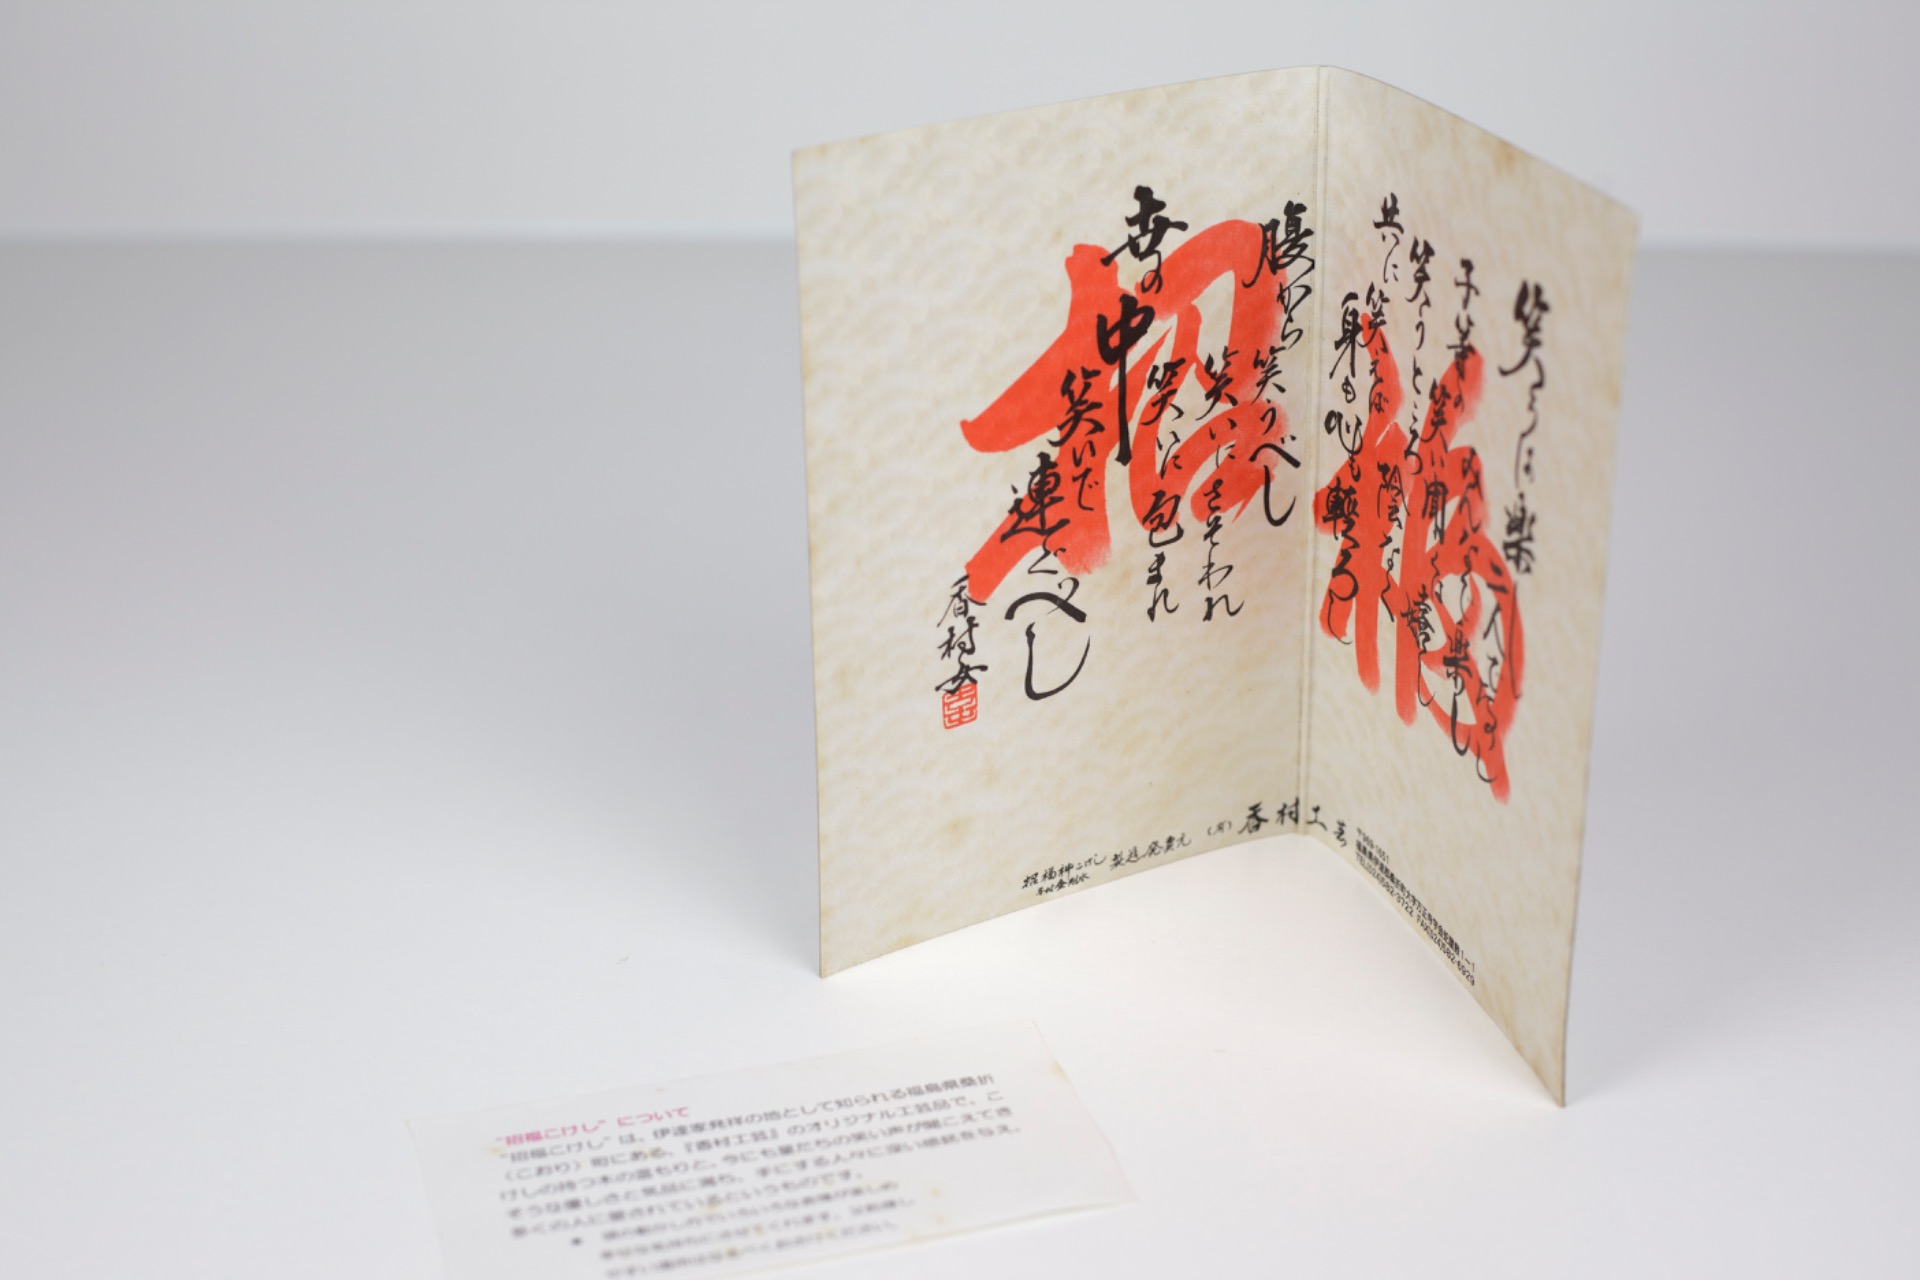 招福
笑うは楽
子等の
笑い聞くは
笑うところ
嬉し
共に笑えば
身も心も軽ろし
腹から笑うべし
笑いにさそわれ
笑いに包まれ
幸の中
笑いで
連ぐべし
香村女
招福神こけし 製造発売元
(有) 香村工芸
〒969-1651
TEL(024)582-3722 FAX(024)582-6929
"招福こけし" について
"招福こけし" は、伊達家発祥の地として知られる福島県桑折
(こおり) 町にある、『香村工芸』のオリジナル工芸品で、こ
けしの持つ木の温もりと、今にも童たちの笑い声が聞こえてき
そうな優しさと気品に満ち、手にする人々に深い感銘を与え、
多くの人に愛されているというものです。